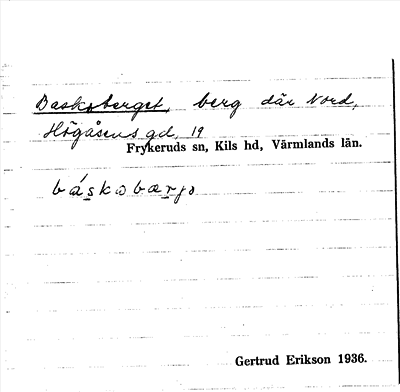 Baskoberget, berg där Nord,
Högåsens gd, 19
Frykeruds sn, Kils hd, Värmlands län.
báskωbærjə
Gertrud Erikson 1936.